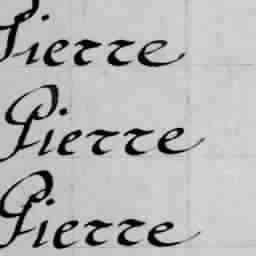 Pierre
Pierre
Pierre